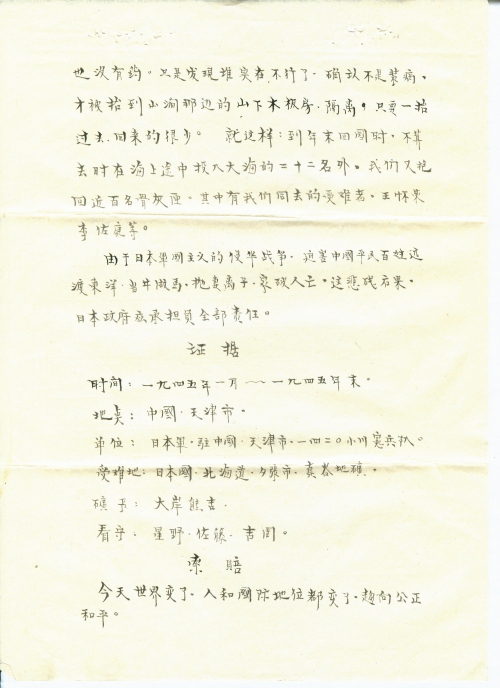 也没有药。只是发现谁实在不行了，确认不是装病，
才被抬到山沟那边的山下木板房，隔离。只要一抬
过去，回来的很少。 就这样：到年末回國时，不算
去时在海上途中投入大海的二十二名外，我们又抱
回近百名骨灰匣。其中有我们同去的受难者，王怀来
李佐庭等。
由于日本軍國主义的侵华战争，迫害中國平民百姓远
渡東洋，当牛做馬，抛妻离子，家破人亡。这悲残后果，
日本政府应承担负全部责任。
证 据
时间：一九四五年一月～一九四五年末。
地点：中國·天津市。
单位：日本軍·駐中國·天津市·一四二〇小川憲兵队。
受难地：日本國·北海道·夕张市，真谷地礦。
礦 手：大岸熊吉·
看守：星野·佐藤·吉田。
索 賠
今天世界变了，人和國际地位都变了，趋向公正
和平。